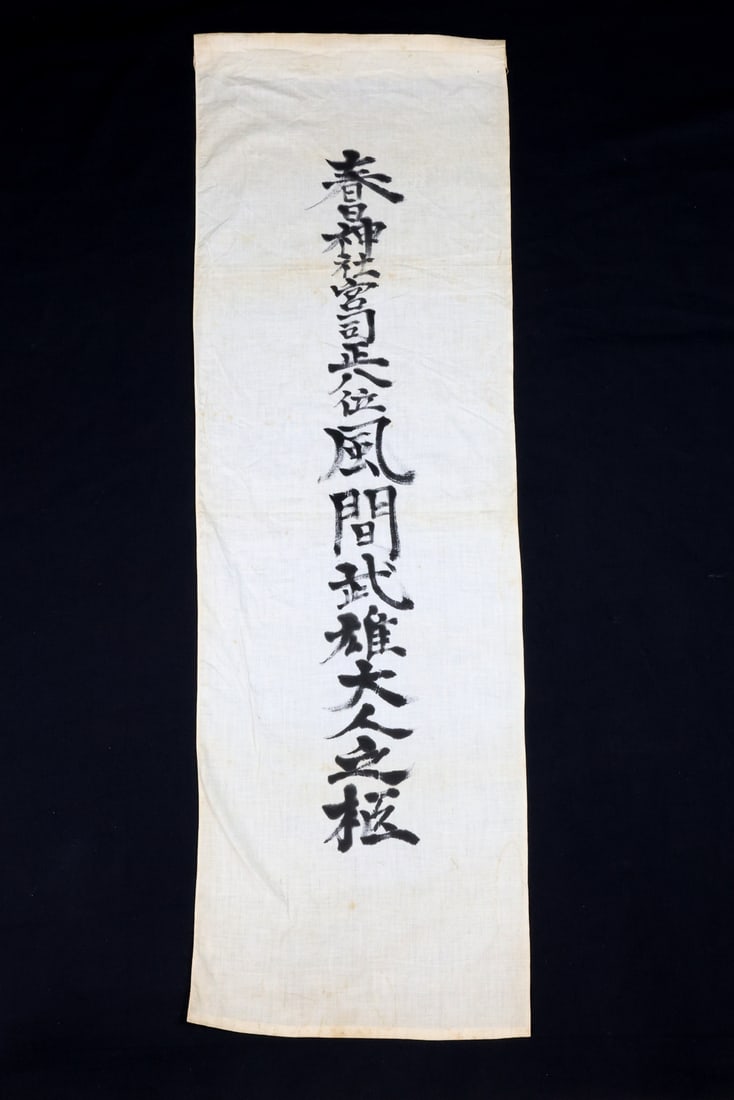 春日神社宮司正八位風間武雄大人之柩